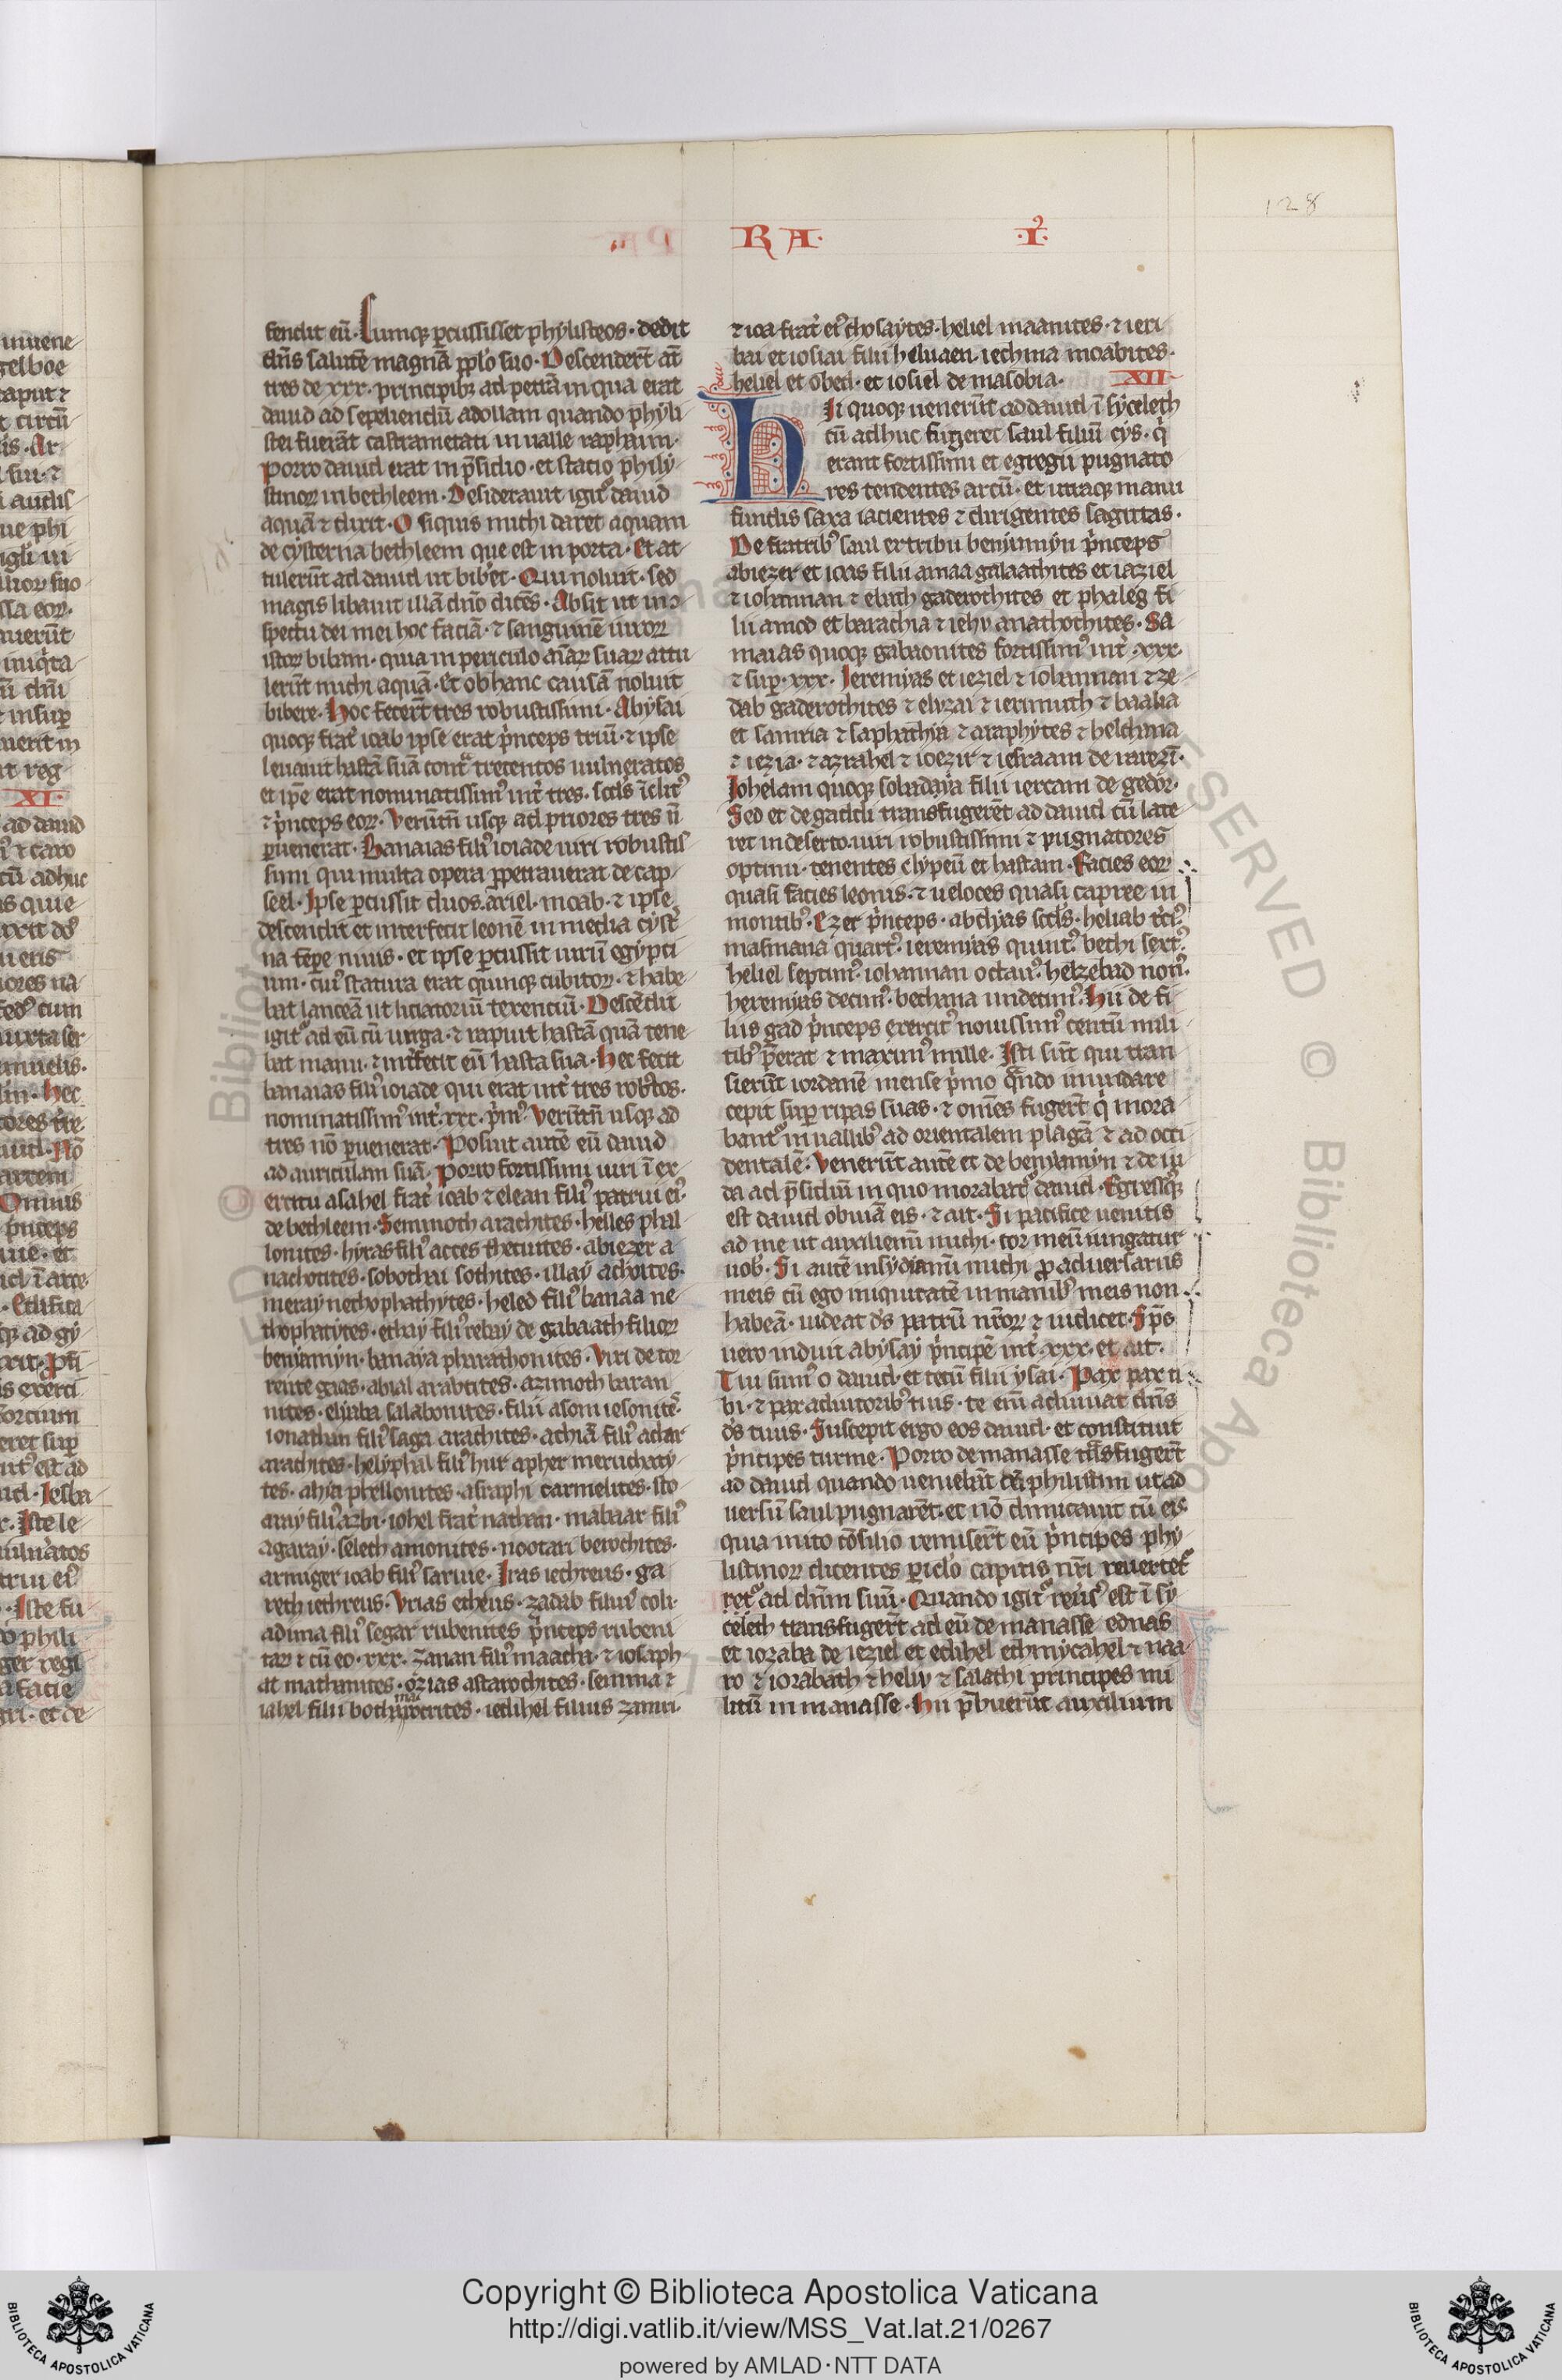 128
RA· ·I·
fendit eū· Cumq; ꝑcussisset phylisteos· dedit
dn̄s salutē magnā pplo suo· Descendert̄ at̄
tres de xxx· principibꝫ ad petrā in qua erat
dauid ad sepeliendū adollam quando phyli
stei fuerāt castrametati in ualle raphaim·
Porro dauid erat in p̄sidio· et statio phily
stinoꝝ in bethleem· Desiderauit igit᷑ dauid
aquā ⁊ dixit· O siquis michi daret aquam
de cysterna bethleem que est in porta· Et at
tulerūt ad dauid ut bib'et· Qui noluit· sed
magis libauit illā dn̄o dicēs· Absit ut in ↄ
spectu dei mei hoc faciā· ⁊ sanguinē uiroꝝ
istoꝝ bibam· quia in periculo aīaꝝ suaꝝ attu
lerūt michi aquā· Et ob hanc causā noluit
bibere· Hoc fecert̄ tres robustissimi· Abysai
quoq; frat' ioab ipse erat p'nceps triū· ⁊ ipse
leuauit hastā suā cont̃ trecentos uulneratos
et ip̄e erat nominatissim᷒ int' tres· scd̄s īclit᷒
⁊ p'nceps eoꝝ· Verūtn̄ usq; ad priores tres n̄
ꝑuenerat· Banaias fili᷒ ioiade uiri robustis
simi qui multa opera ꝑpetrauerat de cap
seel· Ipse ꝑcussit duos· ariel· moab· ⁊ ipse
descendit et interfecit leonē in media cyst'
na tēpe niuis· et ipse ꝑcussit uirū egypti
um· cui᷒ statura erat quinq; cubitoꝝ· ⁊ habe
bat lanceā ut liciatoriū texenciū· Descēdit
igit᷑ ad eū cū uirga· ⁊ rapuit hastā quā tene
bat manu· ⁊ int'fecit eū hasta sua· Hec fecit
banaias fili᷒ ioiade qui erat int' tres rob'tos·
nominatissim᷒ int'· xxx· p'm᷒· Verūtn̄ usq; ad
tres nō ꝑuenerat· Posuit autē eū dauid
ad auriculam suā· Porro fortissimi uiri ī ex
ercitu asahel frat' ioab ⁊ elean fili᷒ patrui ei᷒·
de bethleem· Semmoth arachites· helles phal
lonites· hyras fili᷒ acces thecuites· abiezer a
nachotites· sobochai sothites· illay achoites·
meray nethophathytes· heled fili᷒ banaa ne
thophatytes· ethay fili᷒ rebay de gabaath filioꝝ
beniamyn· banaya pharathonites· Viri de tor
rente gaas· abial arabtites· azimoth baran
nites· elyaba salabonites· filii asom iesonite᷒·
ionathan fili᷒ saga arachites· achiā fili᷒ achar
arachites· helyphal fili᷒ hur apher meruchaty
tes· ahia phellonites· asraphi carmelites· sto
aray fili᷒ azbi· iohel frat' nathan· mabaar fili᷒
agaray· selech amonites· nootari berochites·
armiger ioab fili᷒ saruie· Iras iethreus· ga
reth iethreus· Vrias etheus· zadab filius coli·
adina fili᷒ segar rubenites p'nceps rubeni
taꝝ ⁊ cū eo· xxx· Zanan fili᷒ maacha· ⁊ iosaph
at mathanites· ozias astarochites· semma ⁊
iahel filii iedihel filius zamri·
⁊ ioa frat' ei᷒ thosaytes· heliel maanites· ⁊ ieri
bai et iosiai filii heluaen· iethma moabites·
heliel et obed· et iosiel de masobia· XII
Hii quoq; uenerūt ad dauid ī syceleth
cū adhuc fugeret saul filiū cys· q'
erant fortissimi et egregii pugnato
res tendentes arcū· et utraq; manu
fundis saxa iacientes ⁊ dirigentes sagittas·
De fratrib᷒ saul ex tribu beniamyn p'nceps
abiezer et ioas filii amaa galaathites et iaziel
⁊ iohannan ⁊ elieth gaderothites et phaleg fi
lii amod et barachia ⁊ iehu anathothites· Sa
maias quoq; gabaonites fortissim᷒ int'· xxx·
⁊ suꝑ· xxx· Ieremyas et ieziel ⁊ iohannan ⁊ ze
dab gaderothites ⁊ elyzai ⁊ ierimuth ⁊ baalia
et samria ⁊ saphathia ⁊ araphytes ⁊ helchana
⁊ iezia· ⁊ azrahel ⁊ ioezir ⁊ iesraam de
Iohelam quoq; sobadaya filii ieroam de gedor·
Sed et de gaddi transfugerēt ad dauid cū late
ret in deserto· uiri robustissimi ⁊ pugnatores
optimi· tenentes clypeū et hastam· Facies eoꝝ
quasi facies leonis· ⁊ ueloces quasi capree in
montib᷒· Ezer p'nceps· abdyas scd̄s· heliab t'ci᷒
masmana quart᷒· ieremyas quint᷒· bethi sext᷒·
heliel septim᷒· iohannan octau᷒· helzebad non᷒·
heremyas decim᷒· bechana undecim᷒· Hii de fi
liis gad p'nceps exercit᷒ nouissim᷒ centū mili
tib᷒ p̄erat ⁊ maxim᷒ mille· Isti sūt qui tran
sierūt iordanē mense p'mo q̄ndo inundare
cepit suꝑ ripas suas· ⁊ om̄es fugert̄ q' mora
bant᷑ in uallib᷒ ad orientalem plagā ⁊ ad occi
dentalē· Venerūt autē et de beniamyn ⁊ de iu
da ad p̄sidiū in quo morabat᷑ dauid· Egressusq;
est dauid obuiā eis· ⁊ ait· Si pacifice uenitis
ad me ut auxiliemī michi· cor meū iungatur
uob'· Si autē insydiamī michi ꝓ aduersariis
meis cū ego iniquitatē in manib᷒ meis non
habeā· uideat ds̄ patrū nr̄oꝝ ⁊ iudicet· Sp̄s
uero induit abysay p'ncipē int'· xxx· et ait·
Tui sum᷒ o dauid· et tecū filii ysai· Pax pax ti
bi· ⁊ pax adiutorib᷒ tuis· te eī adiuuat dn̄s
ds̄ tuus· Suscepit ergo eos dauid· et constituit
p'ncipes turme· Porro de manasse trāsfugert̄
ad dauid quando ueniebāt cū philistim ut ad
uersū saul pugnarēt· et nō dimicauit cū eis
quia inito cōsilio remisert̄ eū p'ncipes phy
listinoꝝ dicentes ꝑiclo capitis nr̄i reuertet᷑
ad dn̄m suū· Quando igit᷑ reūs᷒ est ī sy
celeth transfugert̄ ad eū de manasse ednas
et iozaba de ieziel et edihel et mycahel ⁊ naa
ro ⁊ iorabath ⁊ heliy ⁊ salathi principes mi
litū in manasse· Hii p̄buerūt auxilium
Copyright © Biblioteca Apostolica Vaticana
http://digi.vatlib.it/view/MSS_Vat.lat.21/0267
powered by AMLAD·NTT DATA